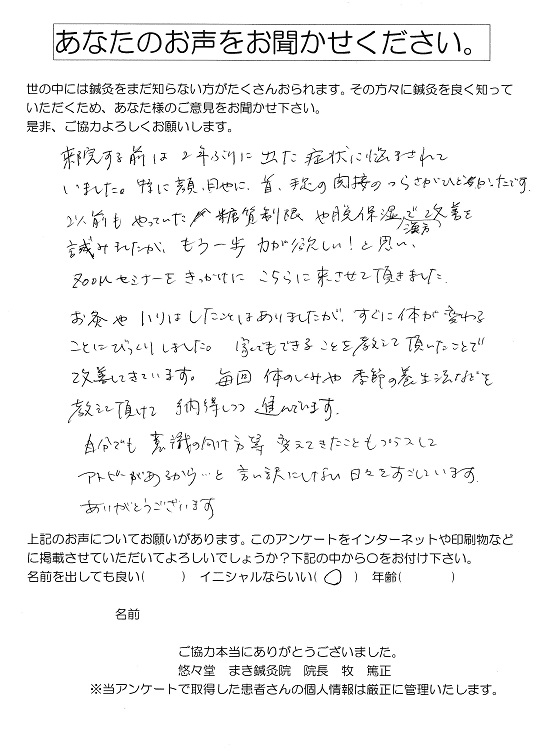 あなたのお声をお聞かせください。
世の中には鍼灸をまだ知らない方がたくさんおられます。その方々に鍼灸を良く知って
いただくため、あなた様のご意見をお聞かせ下さい。
是非、ご協力よろしくお願いします。
来院する前は2年ぶりに出た症状に悩まされて
いました。特に顔、目やに、首、手足の関接のつらさがひどかったです。
以前もやっていた糖質制限や脱保湿、漢方で改善を
試みましたが、もう一歩力が欲しい!と思い、
ZOOMセミナーをきっかけにこちらに来させて頂きました。
お灸やハリはしたことはありましたが、すぐに体が変わる
ことにびっくりしました。家でもできることを教えて頂いたことで
改善してきています。毎回体のしくみや季節の養生法などを
教えて頂けて納得しつつ進んでいます。
自分でも意識の向け方等変えてきたこともプラスして
アトピーがあるから…と言い訳にしない日々をすごしています。
ありがとうございます
上記のお声についてお願いがあります。このアンケートをインターネットや印刷物など
に掲載させていただいてよろしいでしょうか?下記の中から〇をお付け下さい。
名前を出しても良い(　　) イニシャルならいい( 〇 ) 年齢(　　　)
名前
ご協力本当にありがとうございました。
悠々堂　まき鍼灸院　院長　牧　篤正
※当アンケートで取得した患者さんの個人情報は厳正に管理いたします。